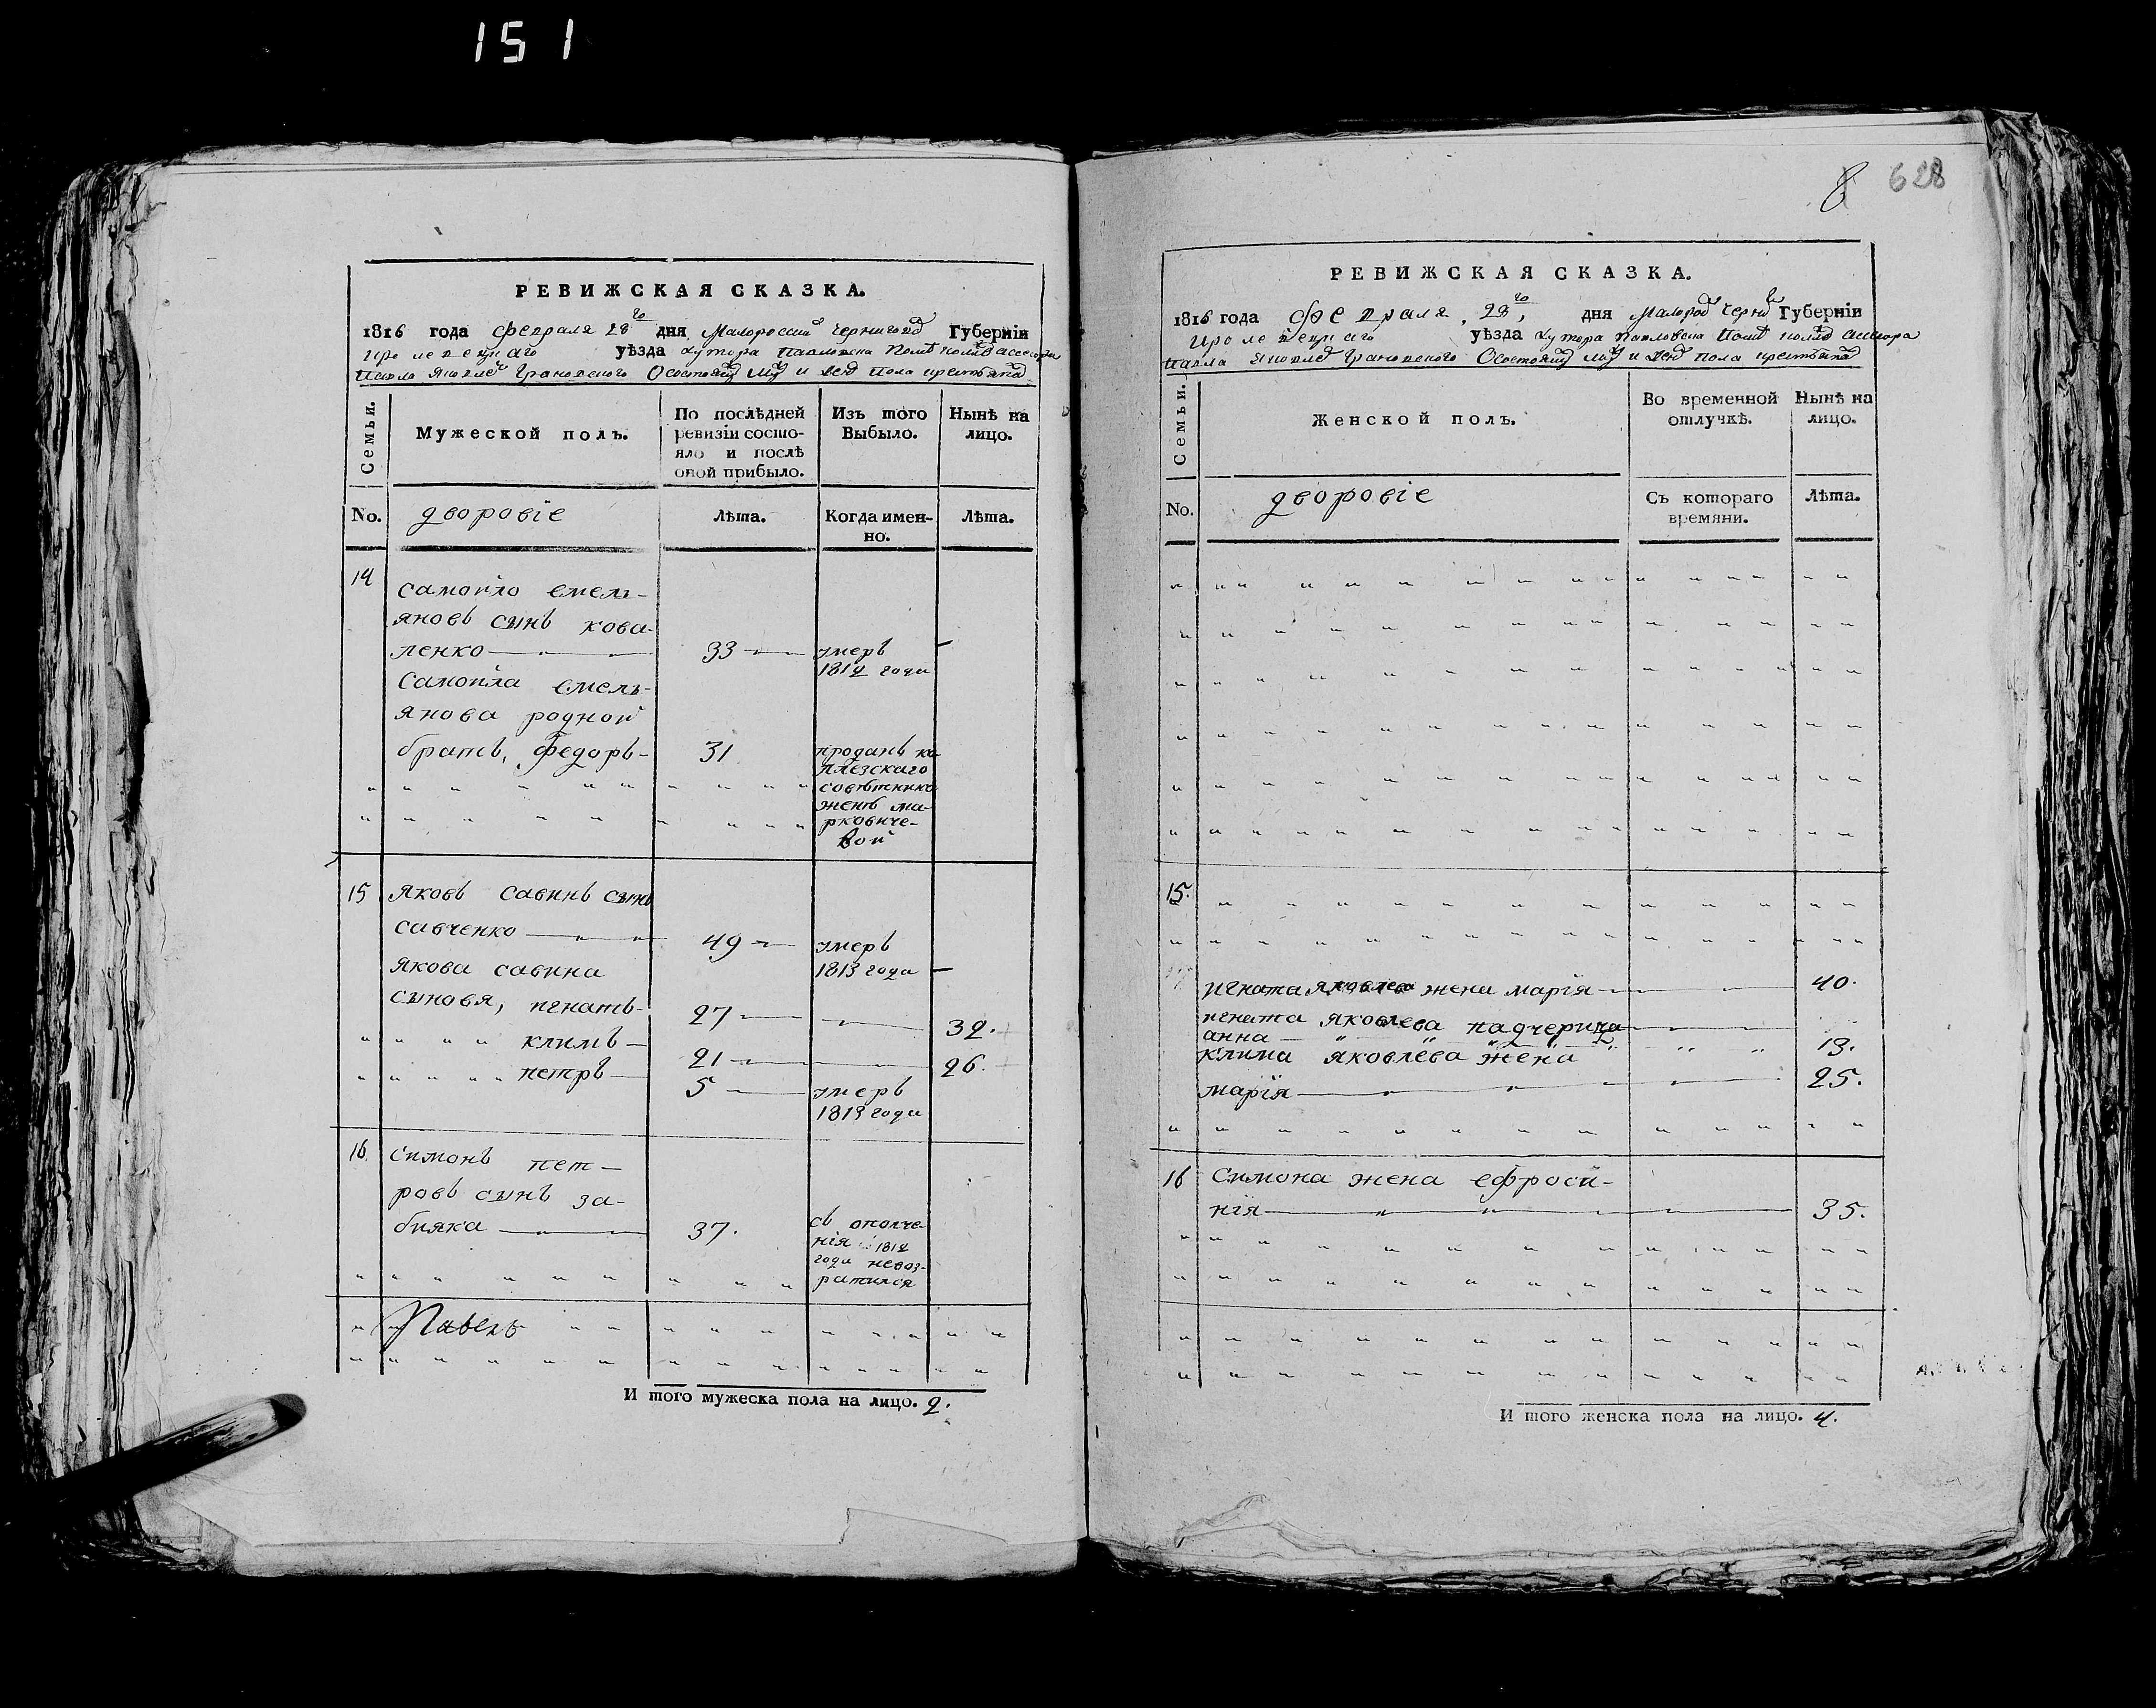 151
РЕВИЖСКАЯ СКАЗКА.
1816 года февраля 28го дня Малоросий Чернигов Губерніи
уѣзда хутора Павловска
Павла Яковле Грановского О состоящ муж и жен пола крестьянах
Семьи.
Мужеской полъ.
По послѣдней
ревизіи состо-
яло и послѣ
оной прибыло.
Изъ того
Выбыло.
Нынѣ на
лицо.
No.
дворовіе
Лѣта.
Когда имен-
но.
Лѣта.
14
самойло емель-
яновъ сынъ кова-
ленко
33
умеръ
1812 года
самойла емель-
янова родной
братъ, федоръ
31
проданъ ко
ллезскаго
совѣтника
женѣ ма-
рковиче-
вой
15
яковъ савинъ сынъ
савченко
49
умеръ
1813 года
якова савина
сыновя, игнатъ
27
32.
климъ
21
26.
петръ
5
умеръ
1813 года
16
симонъ пет-
ровъ сынъ за-
бияка
37.
съ ополче
нія 1812
года невоз-
ратился
Павелъ
И того мужеска пола на лицо. 2.
8 628
РЕВИЖСКАЯ СКАЗКА.
1816 года февраля 28го дня Малорос Черни Губерніи
уѣзда хутора Павловска
Павла Яковле Грановского О состоящ муж и жен пола крестьянах
Семьи.
Женской полъ.
Во временной
отлучкѣ.
Нынѣ на
лицо.
No.
дворовіе
Съ котораго
времяни.
Лѣта.
15.
игната яковлева жена марія
40.
игната яковлева падчерица
анна
13.
клима яковлева жена
марія
25.
16
симона жена ефроси-
нія
35.
И того женска пола на лицо. 4.